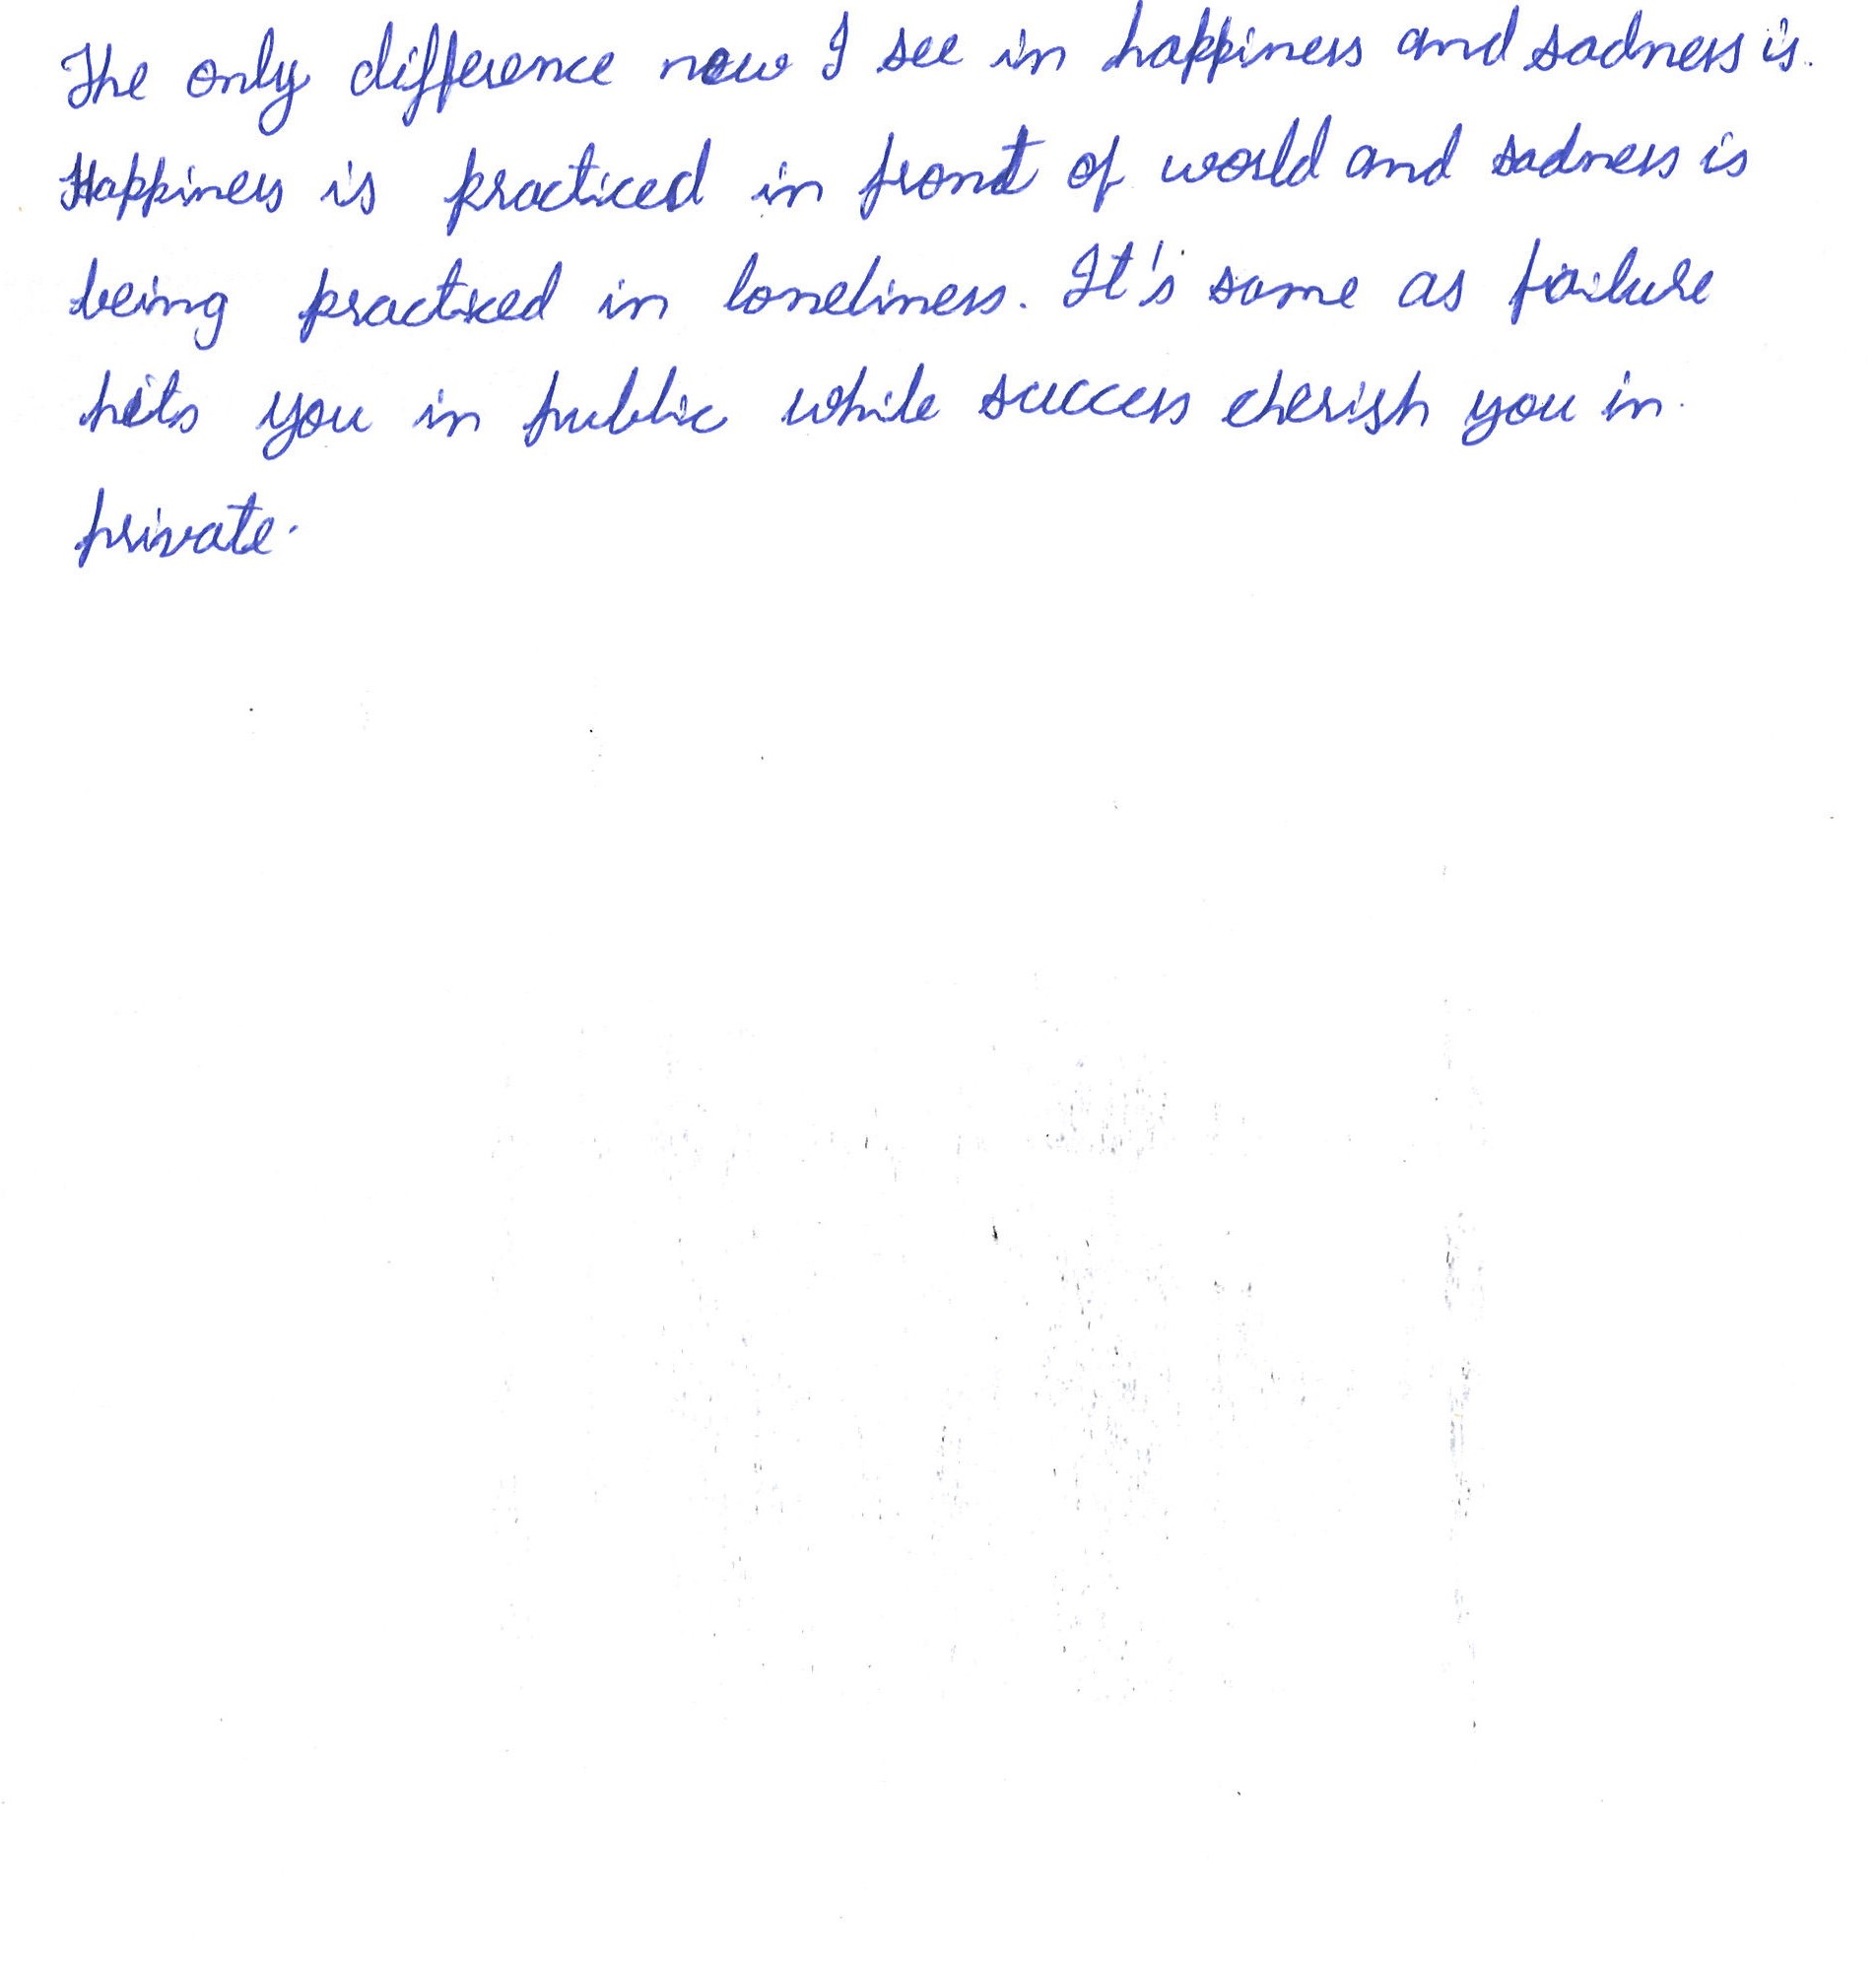 The only difference now I see in happiness and sadness is.
Happiness is practiced in front of world and sadness is
being practiced in loneliness. It's same as failure
hits you in public while success cherish you in
private.